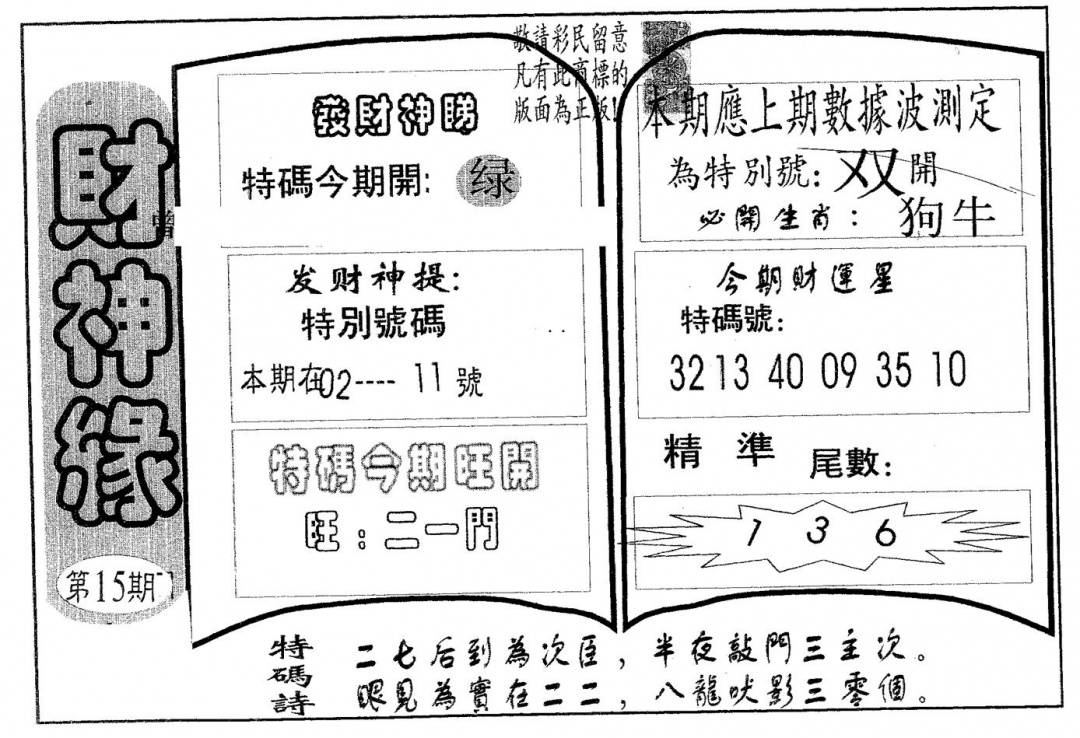 敬請彩民留意
凡有此商標的
版面為正版!
財神緣
曾
第15期
發財神睇
特碼今期開: 绿
发财神提:
特別號碼
本期在02---- 11 號
特碼今期旺開
旺:二一門
本期應上期數據波測定
為特別號: 双開
必開生肖: 狗牛
今期財運星
特碼號:
32 13 40 09 35 10
精準 尾數:
1 3 6
特碼詩
二七后到為次臣,半夜敲門三主次。
眼見為實在二二,八龍吠影三零個。